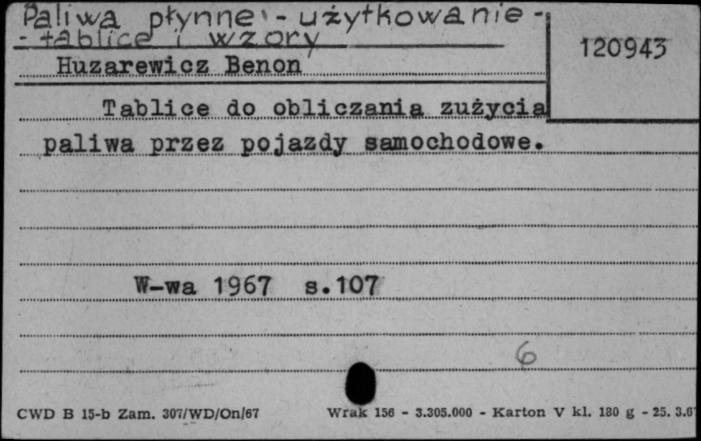 Paliwa płynne - użytkowanie -
- tablice i wzory
120943
Huzarewicz Benon
Tablice do obliczania zużycia
paliwa przez pojazdy samochodowe.
W-wa 1967 s.107
6
CWD B 15-b Zam. 307/WD/On/67 Wrak 156 - 3.305.000 - Karton V kl. 180 g - 25. 3.67